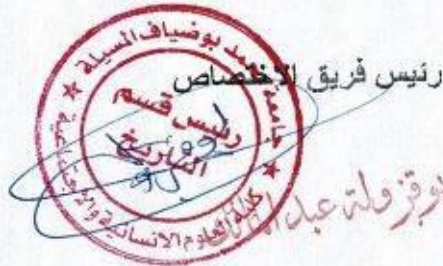 رئيس فريق الاختصاص
جامعة محمد بوضياف المسيلة
رئيس قسم
التاريخ
كلية العلوم الانسانية والاجتماعية
بوقزولة عبد